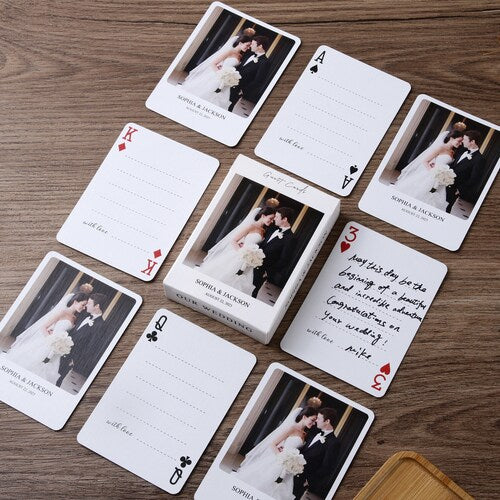 SOPHIA & JACKSON
AUGUST 21, 2023
A
with love
A
K
with love
K
Guest Cards
SOPHIA & JACKSON
AUGUST 21, 2023
OUR WEDDING
SOPHIA & JACKSON
AUGUST 21, 2023
3
May this day be the
beginning of a beautiful
and incredible adventure
Congratulations on
your wedding!
with love
Mike
3
SOPHIA & JACKSON
AUGUST 21, 2023
Q
with love
Q